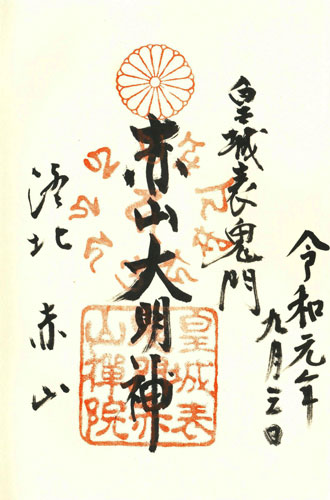 令和元年
九月三日
皇城表鬼門
赤山大明神
洛北 赤山
皇城表
山禅院